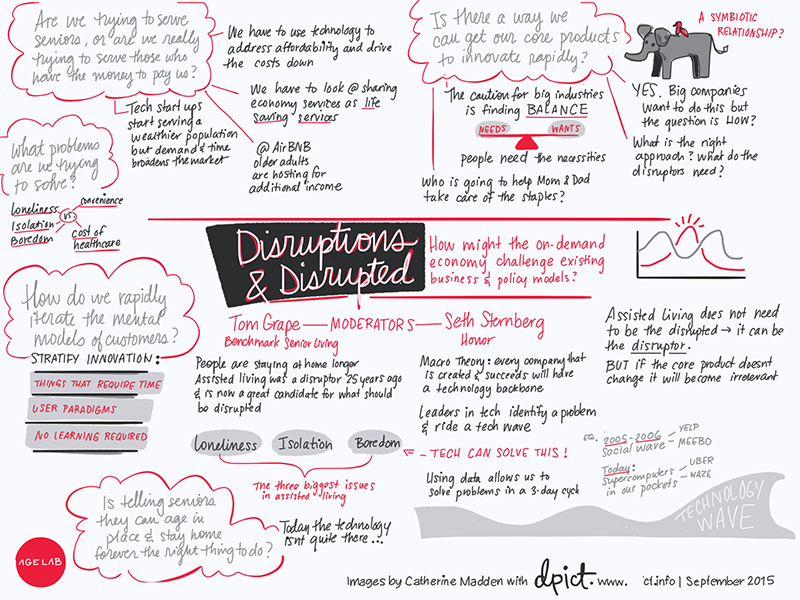 Are we trying to serve
seniors, or are we really
trying to serve those who
have the money to pay us?
We have to use technology to
address affordability and drive
the costs down
We have to look @ sharing
economy services as life
saving services
Tech start ups
start serving a
wealthier population
but demand & time
broadens the market
@ AirBNB
older adults
are hosting for
additional income
Is there a way we
can get our core products
to innovate rapidly?
A SYMBIOTIC
RELATIONSHIP?
The caution for big industries
is finding BALANCE
NEEDS
WANTS
people need the necessities
Who is going to help Mom & Dad
take care of the staples?
YES. Big companies
want to do this but
the question is HOW?
What is the right
approach? What do the
disruptors need?
What problems
are we trying
to solve?
Loneliness
Isolation
Boredom
vs.
convenience
cost of
healthcare
Disruptions
& Disrupted
How might the on-demand
economy challenge existing
business & policy models?
How do we rapidly
iterate the mental
models of customers?
STRATIFY INNOVATION:
THINGS THAT REQUIRE TIME
USER PARADIGMS
NO LEARNING REQUIRED
Tom Grape — MODERATORS — Seth Sternberg
Benchmark Senior Living
Honor
People are staying at home longer
Assisted living was a disruptor 25 years ago
& is now a great candidate for what should
be disrupted
Loneliness
Isolation
Boredom
The three biggest issues
in assisted living
Macro Theory: every company that
is created & succeeds will have
a technology backbone
Leaders in tech identify a problem
& ride a tech wave
← - TECH CAN SOLVE THIS!
Using data allows us to
solve problems in a 3-day cycle
Assisted Living does not need
to be the disrupted → it can be
the disruptor.
BUT if the core product doesnt
change it will become irrelevant
eg. 2005-2006
Social wave
YELP
MEEBO
Today:
Supercomputers
in our pockets
UBER
WAZE
TECHNOLOGY
WAVE
Is telling seniors
they can age in
place & stay home
forever the right thing to do?
Today the technology
isnt quite there...
AGELAB
Images by Catherine Madden with dpict. www. ct.info | September 2015